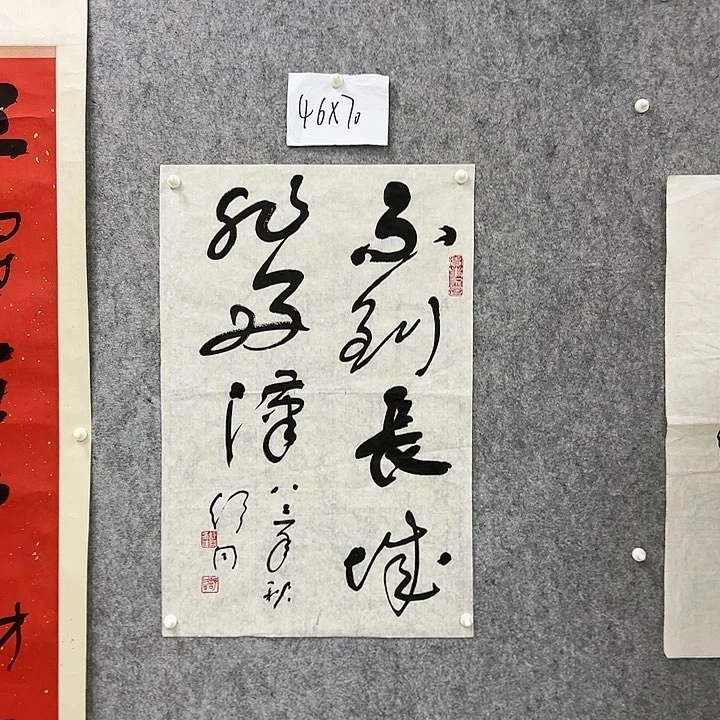 46X70
不到長城
非好漢
八三年秋
舒同